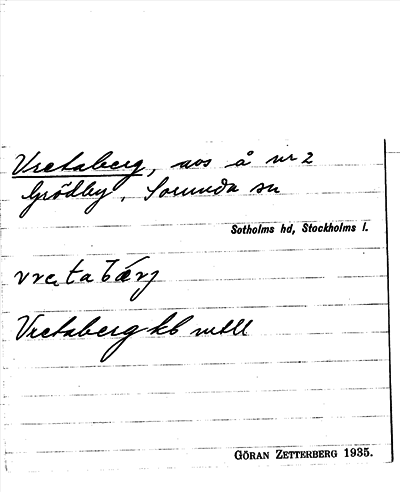 Vretaberg, aos å nr 2
Grödby, Sorunda sn
Sotholms hd, Stockholms l.
vretabærj
Vretaberg kb
GÖRAN ZETTERBERG 1935.